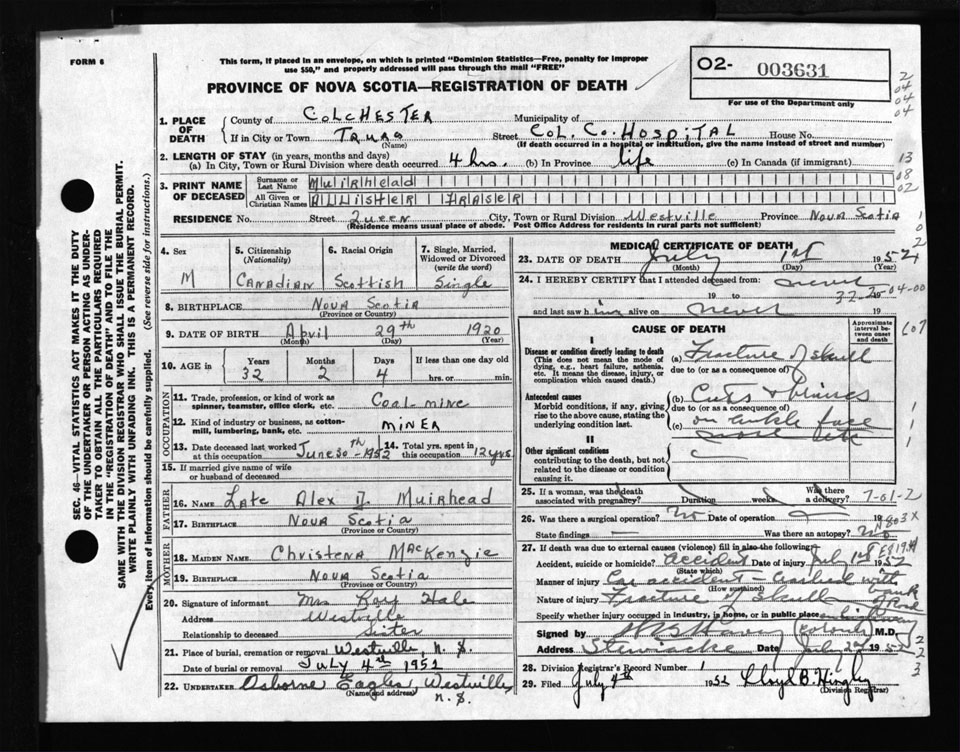 FORM 6
This form, if placed in an envelope, on which is printed "Dominion Statistics—Free, penalty for improper
use $50," and properly addressed will pass through the mail "FREE"
PROVINCE OF NOVA SCOTIA—REGISTRATION OF DEATH
02- 003631
For use of the Department only
2
04
04
04
13
08
02
SEC. 46—VITAL STATISTICS ACT MAKES IT THE DUTY
OF THE UNDERTAKER OR PERSON ACTING AS UNDER-
TAKER TO OBTAIN ALL THE PARTICULARS REQUIRED
IN THE "REGISTRATION OF DEATH" AND TO FILE THE
SAME WITH THE DIVISION REGISTRAR WHO SHALL ISSUE THE BURIAL PERMIT.
WRITE PLAINLY WITH UNFADING INK. THIS IS A PERMANENT RECORD.
Every item of information should be carefully supplied. (See reverse side for instructions.)
1. PLACE OF DEATH
County of COLCHESTER Municipality of
If in City or Town Truro (Name) Street COL. CO. HOSPITAL House No.
(If death occurred in a hospital or institution, give the name instead of street and number)
2. LENGTH OF STAY (in years, months and days)
(a) In City, Town or Rural Division where death occurred 4 hrs. (b) In Province life (c) In Canada (if immigrant)
3. PRINT NAME OF DECEASED
Surname or Last Name Muirhead
All Given or Christian Names ALLISTER FRASER
RESIDENCE No. Street Queen City, Town or Rural Division Westville Province Nova Scotia
(Residence means usual place of abode. Post Office Address for residents in rural parts not sufficient)
4. Sex M
5. Citizenship (Nationality) Canadian
6. Racial Origin Scottish
7. Single, Married, Widowed or Divorced (write the word) Single
8. BIRTHPLACE Nova Scotia
(Province or Country)
9. DATE OF BIRTH April 29th 1920
(Month) (Day) (Year)
10. AGE in Years 32 Months 2 Days 4 If less than one day old hrs. or min.
OCCUPATION
11. Trade, profession, or kind of work as spinner, teamster, office clerk, etc. Coal-mine
12. Kind of industry or business, as cotton-mill, lumbering, bank, etc. MINER
13. Date deceased last worked at this occupation June 30th-1952
14. Total yrs. spent in this occupation 12 yrs.
15. If married give name of wife or husband of deceased
FATHER
16. NAME Late Alex J. Muirhead
17. BIRTHPLACE Nova Scotia
(Province or Country)
MOTHER
18. MAIDEN NAME Christena MacKenzie
19. BIRTHPLACE Nova Scotia
(Province or Country)
20. Signature of informant Mrs Roy Hale
Address Westville
Relationship to deceased sister
21. Place of burial, cremation or removal Westville, N. S.
Date of burial or removal JULY 4th 1952
22. UNDERTAKER Osborne Eagles Westville
(Name and address) N. S.
MEDICAL CERTIFICATE OF DEATH
23. DATE OF DEATH July 1st 1952
(Month) (Day) (Year)
24. I HEREBY CERTIFY that I attended deceased from never
19 to 19
and last saw him alive on never
CAUSE OF DEATH
Approximate interval between onset and death
I
Disease or condition directly leading to death
(This does not mean the mode of dying, e.g., heart failure, asthenia, etc. It means the disease, injury, or complication which caused death.)
(a) Fracture of skull
due to (or as a consequence of)
Antecedent causes
Morbid conditions, if any, giving rise to the above cause, stating the underlying condition last.
(b) Cuts &
due to (or as a consequence of)
(c) on ankle face
nose etc
II
Other significant conditions contributing to the death, but not related to the disease or condition causing it.
25. If a woman, was the death associated with pregnancy? Duration weeks Was there a delivery?
7-01-2
26. Was there a surgical operation? No Date of operation 19
State findings — Was there an autopsy? No
27. If death was due to external causes (violence) fill in also the following:
Accident, suicide or homicide? accident Date of injury July 1st 1952
(State which)
Manner of injury Car accident —
(How sustained)
Nature of injury Fracture of skull
Specify whether injury occurred in industry, in home, or in public place highway
Signed by M.D.
Address Stewiacke Date July 2nd 1952
28. Division Registrar's Record Number 1
29. Filed July 4th 1952 Lloyd B. Hingley
(Division Registrar)